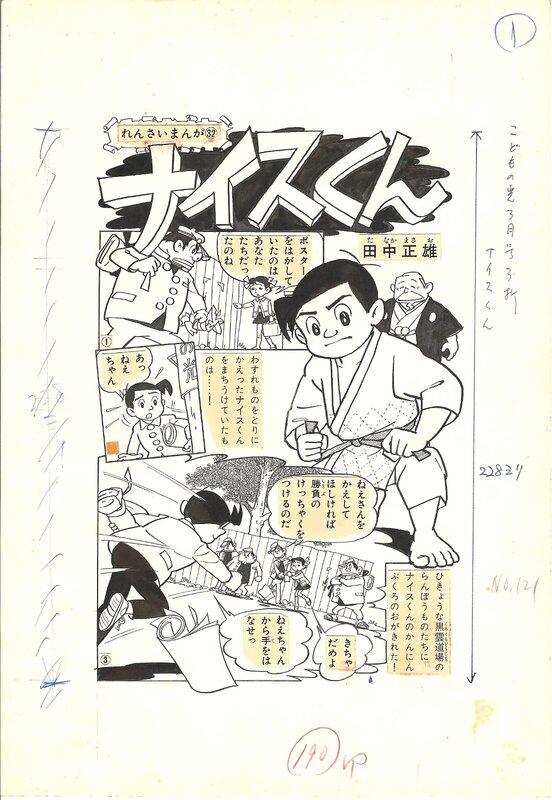 1
れんさいまんが㉜
ナイスくん
たなかまさお
田中正雄
ポスター
をはがして
いたのは
あなた
たちだっ
たのね
①
あっ
ねえ
ちゃん
の光
わすれものをとりに
かえったナイスくん
をまちうけていたも
のは……!
ねえさんを
かえして
ほしければ
勝負の
けっちゃくを
つけるのだ
ひきょうな黒雲道場の
らんぼうものたちに
ナイスくんのかんにん
ぶくろのおがきれた!
きちゃ
だめよ
ねえちゃん
から手をは
なせっ
③
こどもの光3月号3折
ナイスくん
NO.121
190